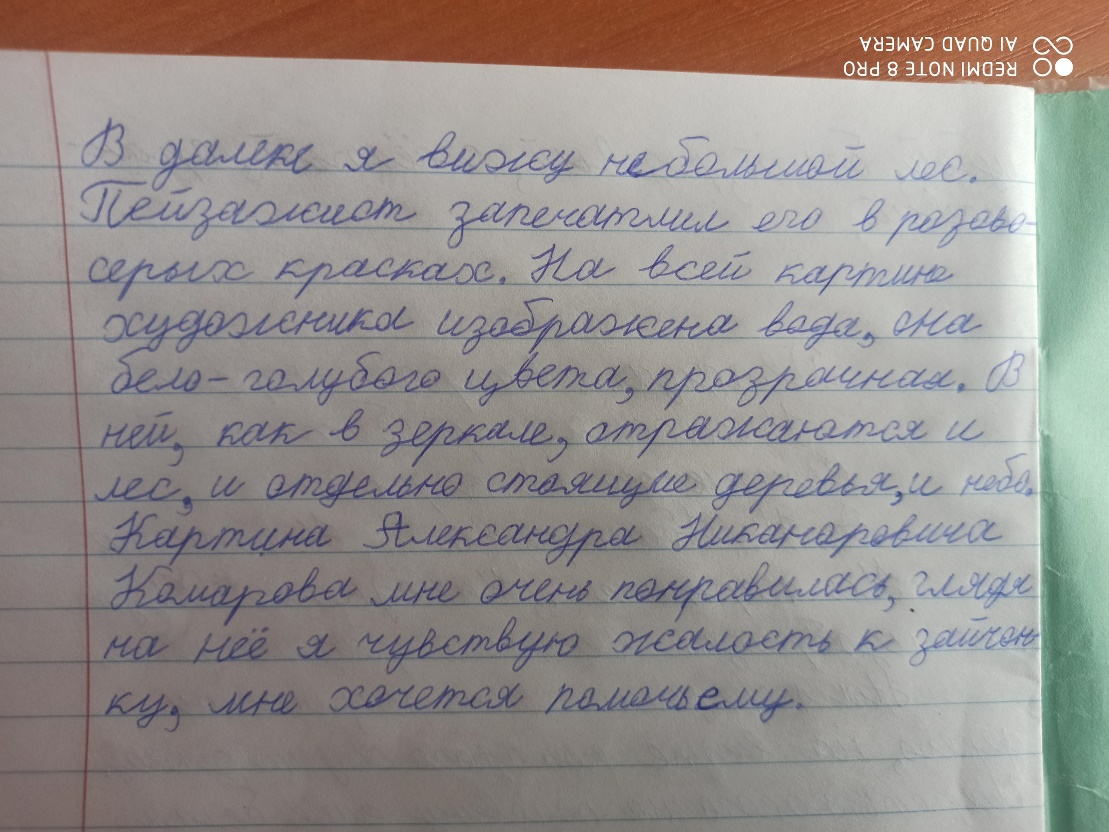 В далеке я вижу небольшой лес.
Пейзажист запечатлил его в розово-
серых красках. На всей картине
художника изображена вода, она
бело-голубого цвета, прозрачная. В
ней, как в зеркале, отражаются и
лес, и отдельно стоящие деревья, и небо.
Картина Александра Никаноровича
Комарова мне очень понравилась, глядя
на неё я чувствую жалость к зайчон-
ку, мне хочется помочь ему.
REDMI NOTE 8 PRO
AI QUAD CAMERA